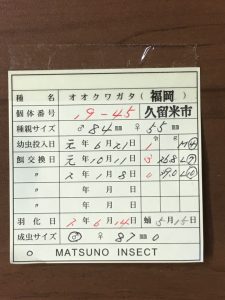 種名 オオクワガタ(福岡)
個体番号 19-45 久留米市
種親サイズ ♂84㎜ ♀55㎜
幼虫投入日 元年6月21日 1
餌交換日 元年10月11日 3 26.8
〃 2年1月8日 29.0
〃 年月日
〃 年月日
羽化日 2年6月14日 蛹5月15日
成虫サイズ ♂ ♀ 87㎜0
MATSUNO INSECT